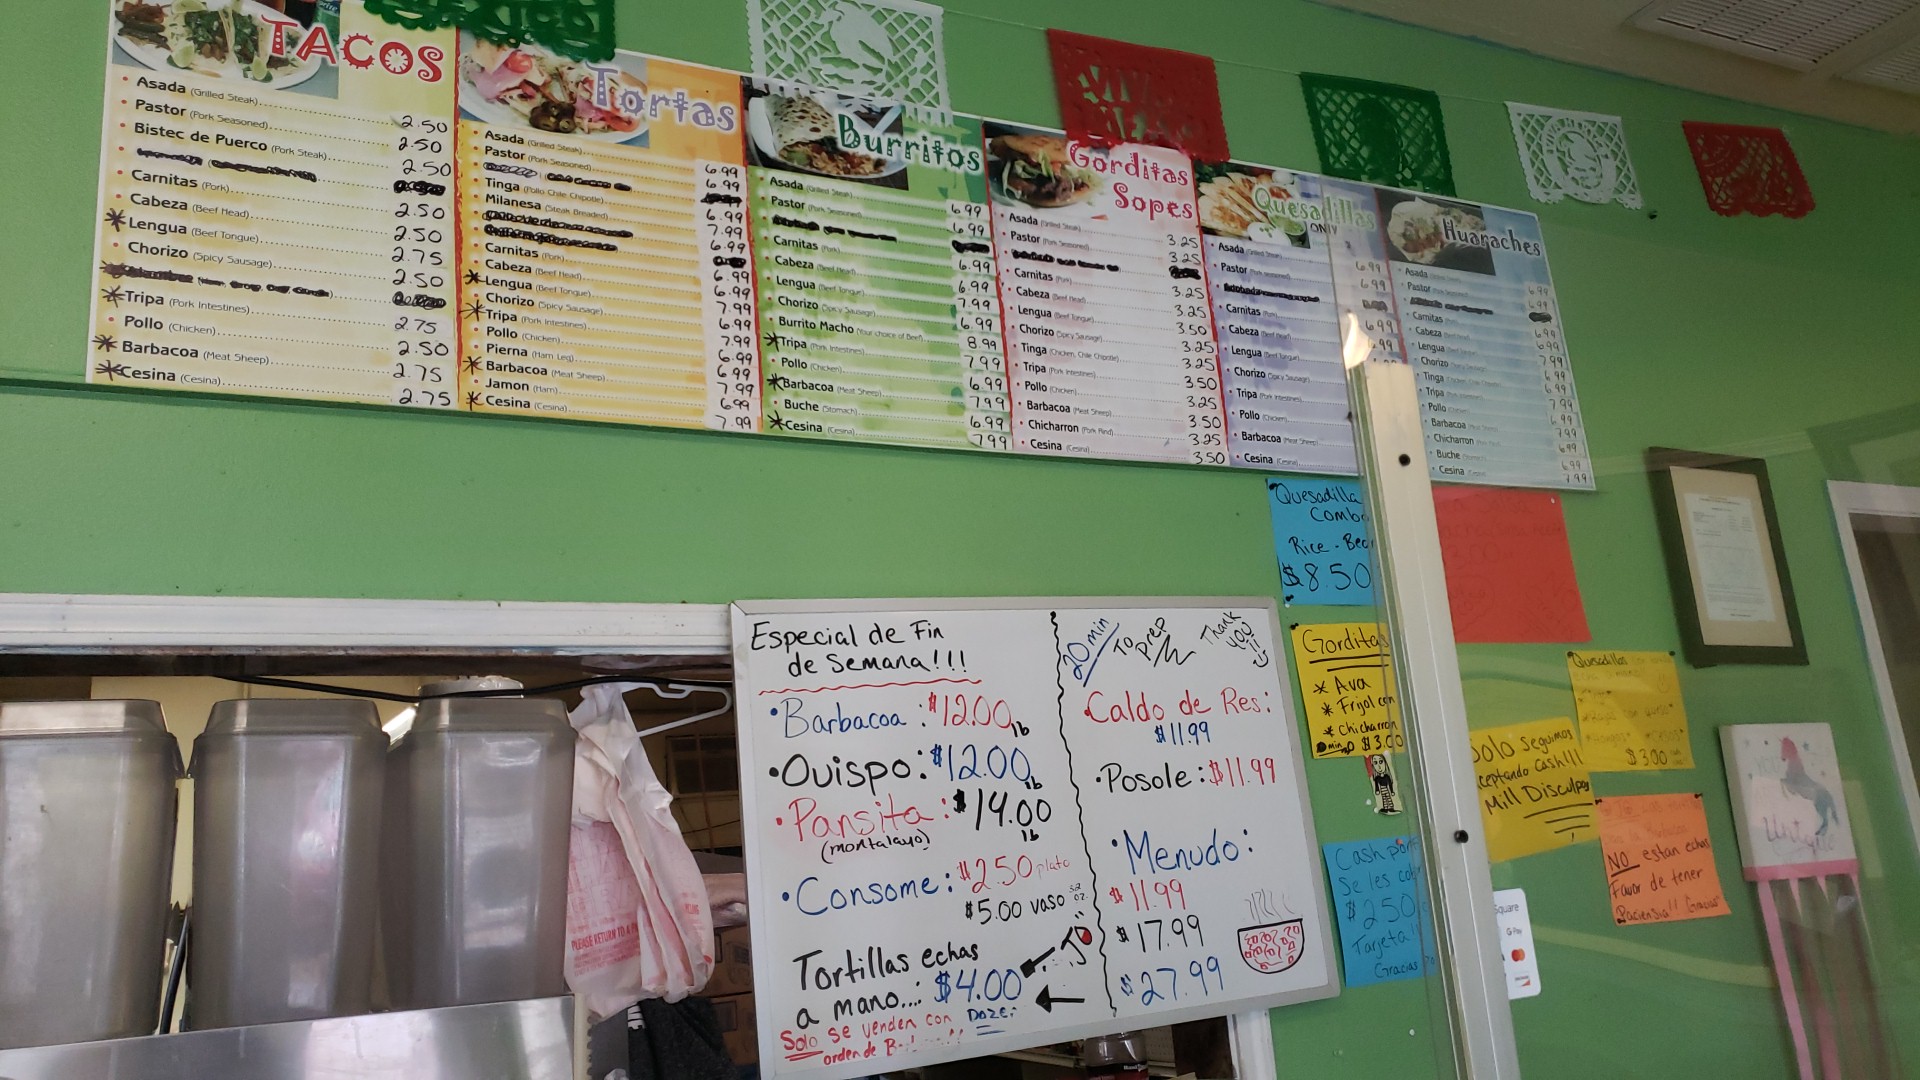 TACOS
Asada (Grilled Steak) 2.50
Pastor (Pork Seasoned) 2.50
Bistec de Puerco (Pork Steak) 2.50
Carnitas (Pork) 2.50
Cabeza (Beef Head) 2.50
Lengua (Beef Tongue) 2.75
Chorizo (Spicy Sausage) 2.50
Tripa (Pork Intestines) 2.75
Pollo (Chicken) 2.50
Barbacoa (Meat Sheep) 2.75
Cesina (Cesina) 2.75
Tortas
Asada (Grilled Steak) 6.99
Pastor (Pork Seasoned) 6.99
Tinga (Pollo Chile Chipotle) 6.99
Milanesa (Steak Breaded) 7.99
6.99
Carnitas (Pork) 6.99
Cabeza (Beef Head) 6.99
Lengua (Beef Tongue) 7.99
Chorizo (Spicy Sausage) 6.99
Tripa (Pork Intestines) 7.99
Pollo (Chicken) 6.99
Pierna (Ham Leg) 6.99
Barbacoa (Meat Sheep) 7.99
Jamon (Ham) 6.99
Cesina (Cesina) 7.99
Burritos
Asada (Grilled Steak) 6.99
Pastor (Pork Seasoned) 6.99
Carnitas (Pork) 6.99
Cabeza (Beef Head) 6.99
Lengua (Beef Tongue) 7.99
Chorizo (Spicy Sausage) 6.99
Burrito Macho (Your choice of Beef) 8.99
Tripa (Pork Intestines) 7.99
Pollo (Chicken) 6.99
Barbacoa (Meat Sheep) 7.99
Buche (Stomach) 6.99
Cesina (Cesina) 7.99
Gorditas
Sopes
Asada (Grilled Steak) 3.25
Pastor (Pork Seasoned) 3.25
Carnitas (Pork) 3.25
Cabeza (Beef Head) 3.25
Lengua (Beef Tongue) 3.50
Chorizo (Spicy Sausage) 3.25
Tinga (Chicken, Chile Chipotle) 3.25
Tripa (Pork Intestines) 3.50
Pollo (Chicken) 3.25
Barbacoa (Meat Sheep) 3.50
Chicharron (Pork Rind) 3.25
Cesina (Cesina) 3.50
Quesadillas
ONLY
Asada (Grilled Steak) 6.99
Pastor (Pork Seasoned) 6.99
Carnitas (Pork) 6.99
Cabeza (Beef Head)
Lengua (Beef Tongue)
Chorizo (Spicy Sausage)
Tripa (Pork Intestines)
Pollo (Chicken)
Barbacoa (Meat Sheep)
Cesina (Cesina)
Huaraches
Asada 6.99
Pastor 6.99
Carnitas 6.99
Cabeza 6.99
Lengua 7.99
Chorizo 6.99
Tinga 6.99
Tripa 7.99
Pollo 6.99
Barbacoa 7.99
Chicharron 6.99
Buche 6.99
Cesina 7.99
Especial de Fin
de Semana!!!
Barbacoa: $12.00 lb
Ouispo: $12.00 lb
Pansita: $14.00 lb
(montalayo)
Consome: $2.50 plato
$5.00 vaso 32 oz.
Tortillas echas
a mano...: $4.00
Doze:
Solo se venden con
orden de
20 min To prep Thank you!!
Caldo de Res:
$11.99
Posole: $11.99
Menudo:
$11.99
$17.99
$27.99
Quesadilla
Combo
Rice -
$8.50
Gorditas
Ava
Frijol con
Chicharron
$3.00
Cash
Se les
$2.50
Tarjeta!!
Gracias
Solo Seguimos
Aceptando Cash!!!
Mill Disculpas
Quesadillas
$3.00
NO estan echas
Favor de tener
Paciensia!! Gracias
Square
G Pay
PLEASE RETURN TO A